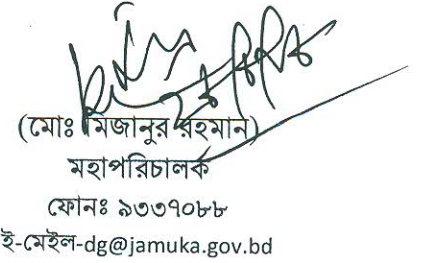 (মোঃ মিজানুর রহমান)
মহাপরিচালক
ফোনঃ ৯৩৩৭০৮৮
ই-মেইল-dg@jamuka.gov.bd